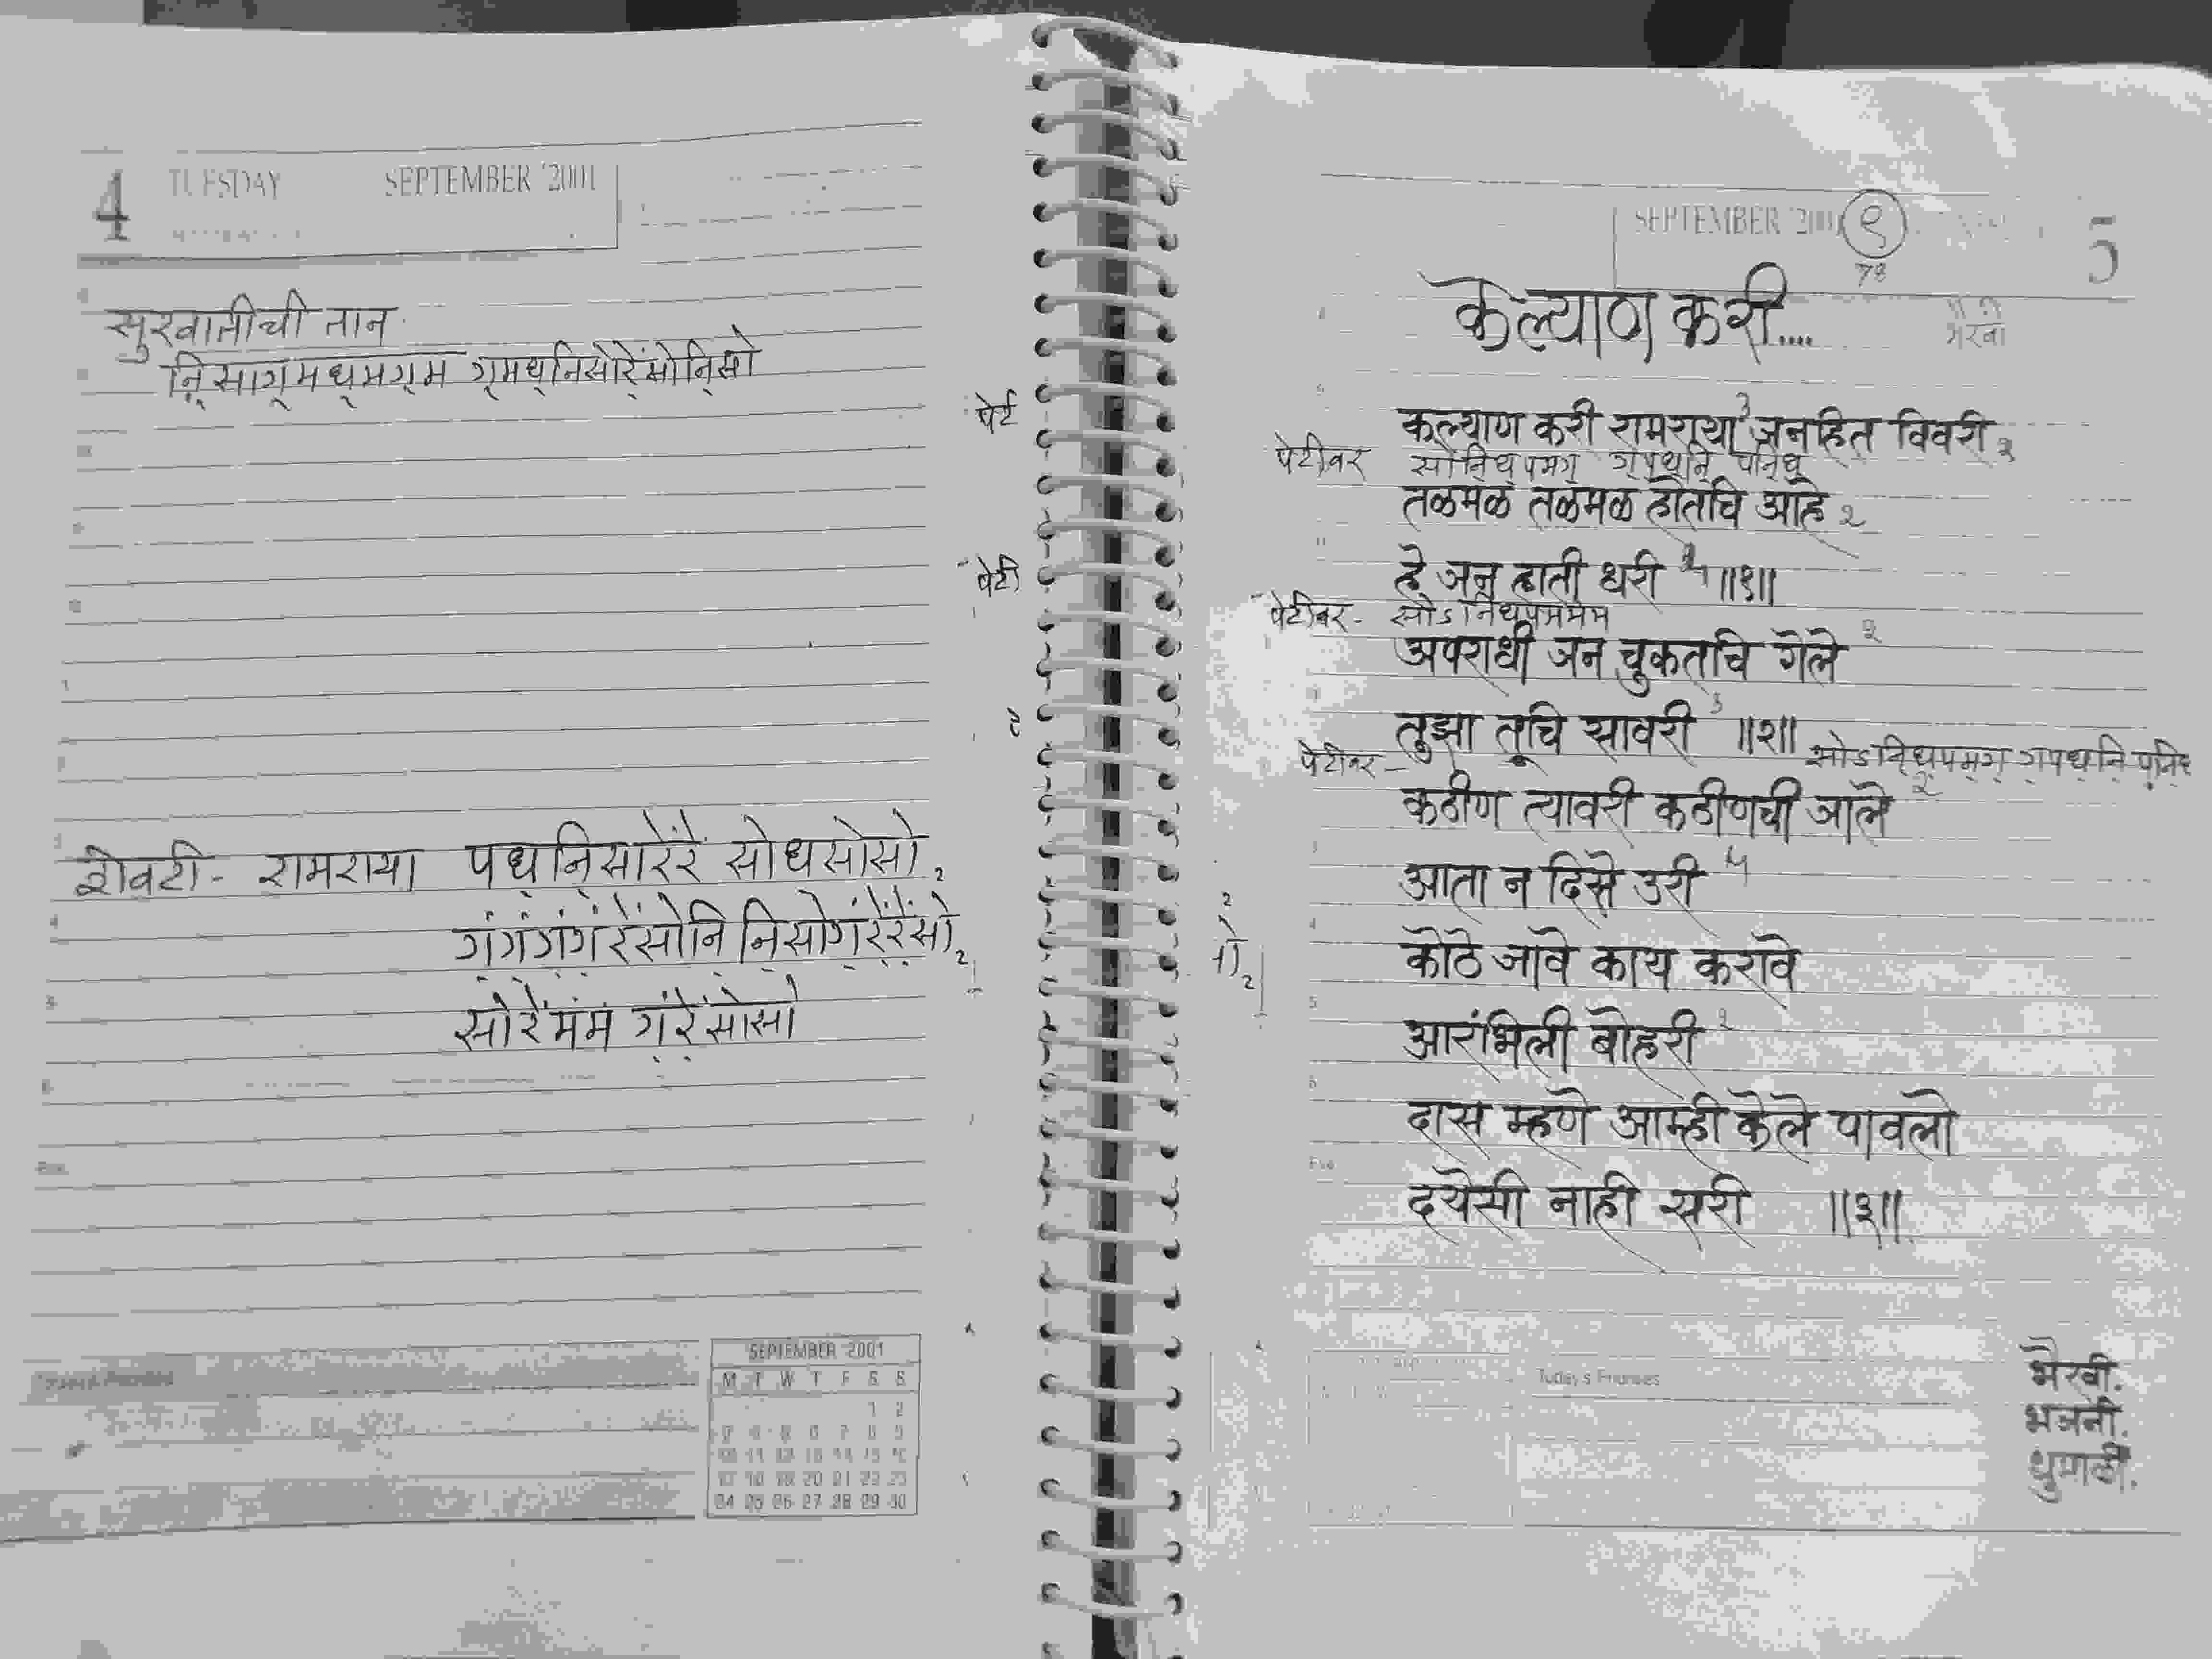 4 TUESDAY SEPTEMBER '2001
सुरवातीची तान
नि॒साग॒मध॒मग॒म ग॒मध॒निसोंरें॒सोंनि॒सो
पेटी
शेवटी - रामराया पध॒नि॒सारेंरें सोधसोसो २
गं॒गं॒गं॒गं॒रेंसोनि नि॒सोगं॒रें॒रें॒सो २
सोरेंमंमं गं॒रें॒सोसो
SEPTEMBER 2001
M T W T F S S
1 2
10 11 12 13 14 15 16
17 18 19 20 21 22 23
24 25 26 27 28 29 30
SEPTEMBER '2001 ९ 5
७४
कल्याण करी....
कल्याण करी रामराया ३ जनहित विवरी २
पेटीवर सोनि॒ध॒पमग॒ ग॒पध॒नि॒ पनि॒ध॒
तळमळ तळमळ होतचि आहे २
हे जन हाती धरी ५ ॥१॥
पेटीवर - सोऽनिधपममम
अपराधी जन चुकतचि गेले २
तुझा तूचि सावरी ३ ॥२॥
पेटीवर - सोऽनि॒ध॒पमग॒ ग॒पध॒नि॒ पनि॒ध
कठीण त्यावरी कठीणची जाले २
आता न दिसे उरी ५
कोठे जावे काय करावे
आरंभिली बोहरी २
दास म्हणे आम्ही केले पावलो
दयेसी नाही सरी ॥३॥
Today's Expenses
भैरवी.
भजनी.
धुमाळी.